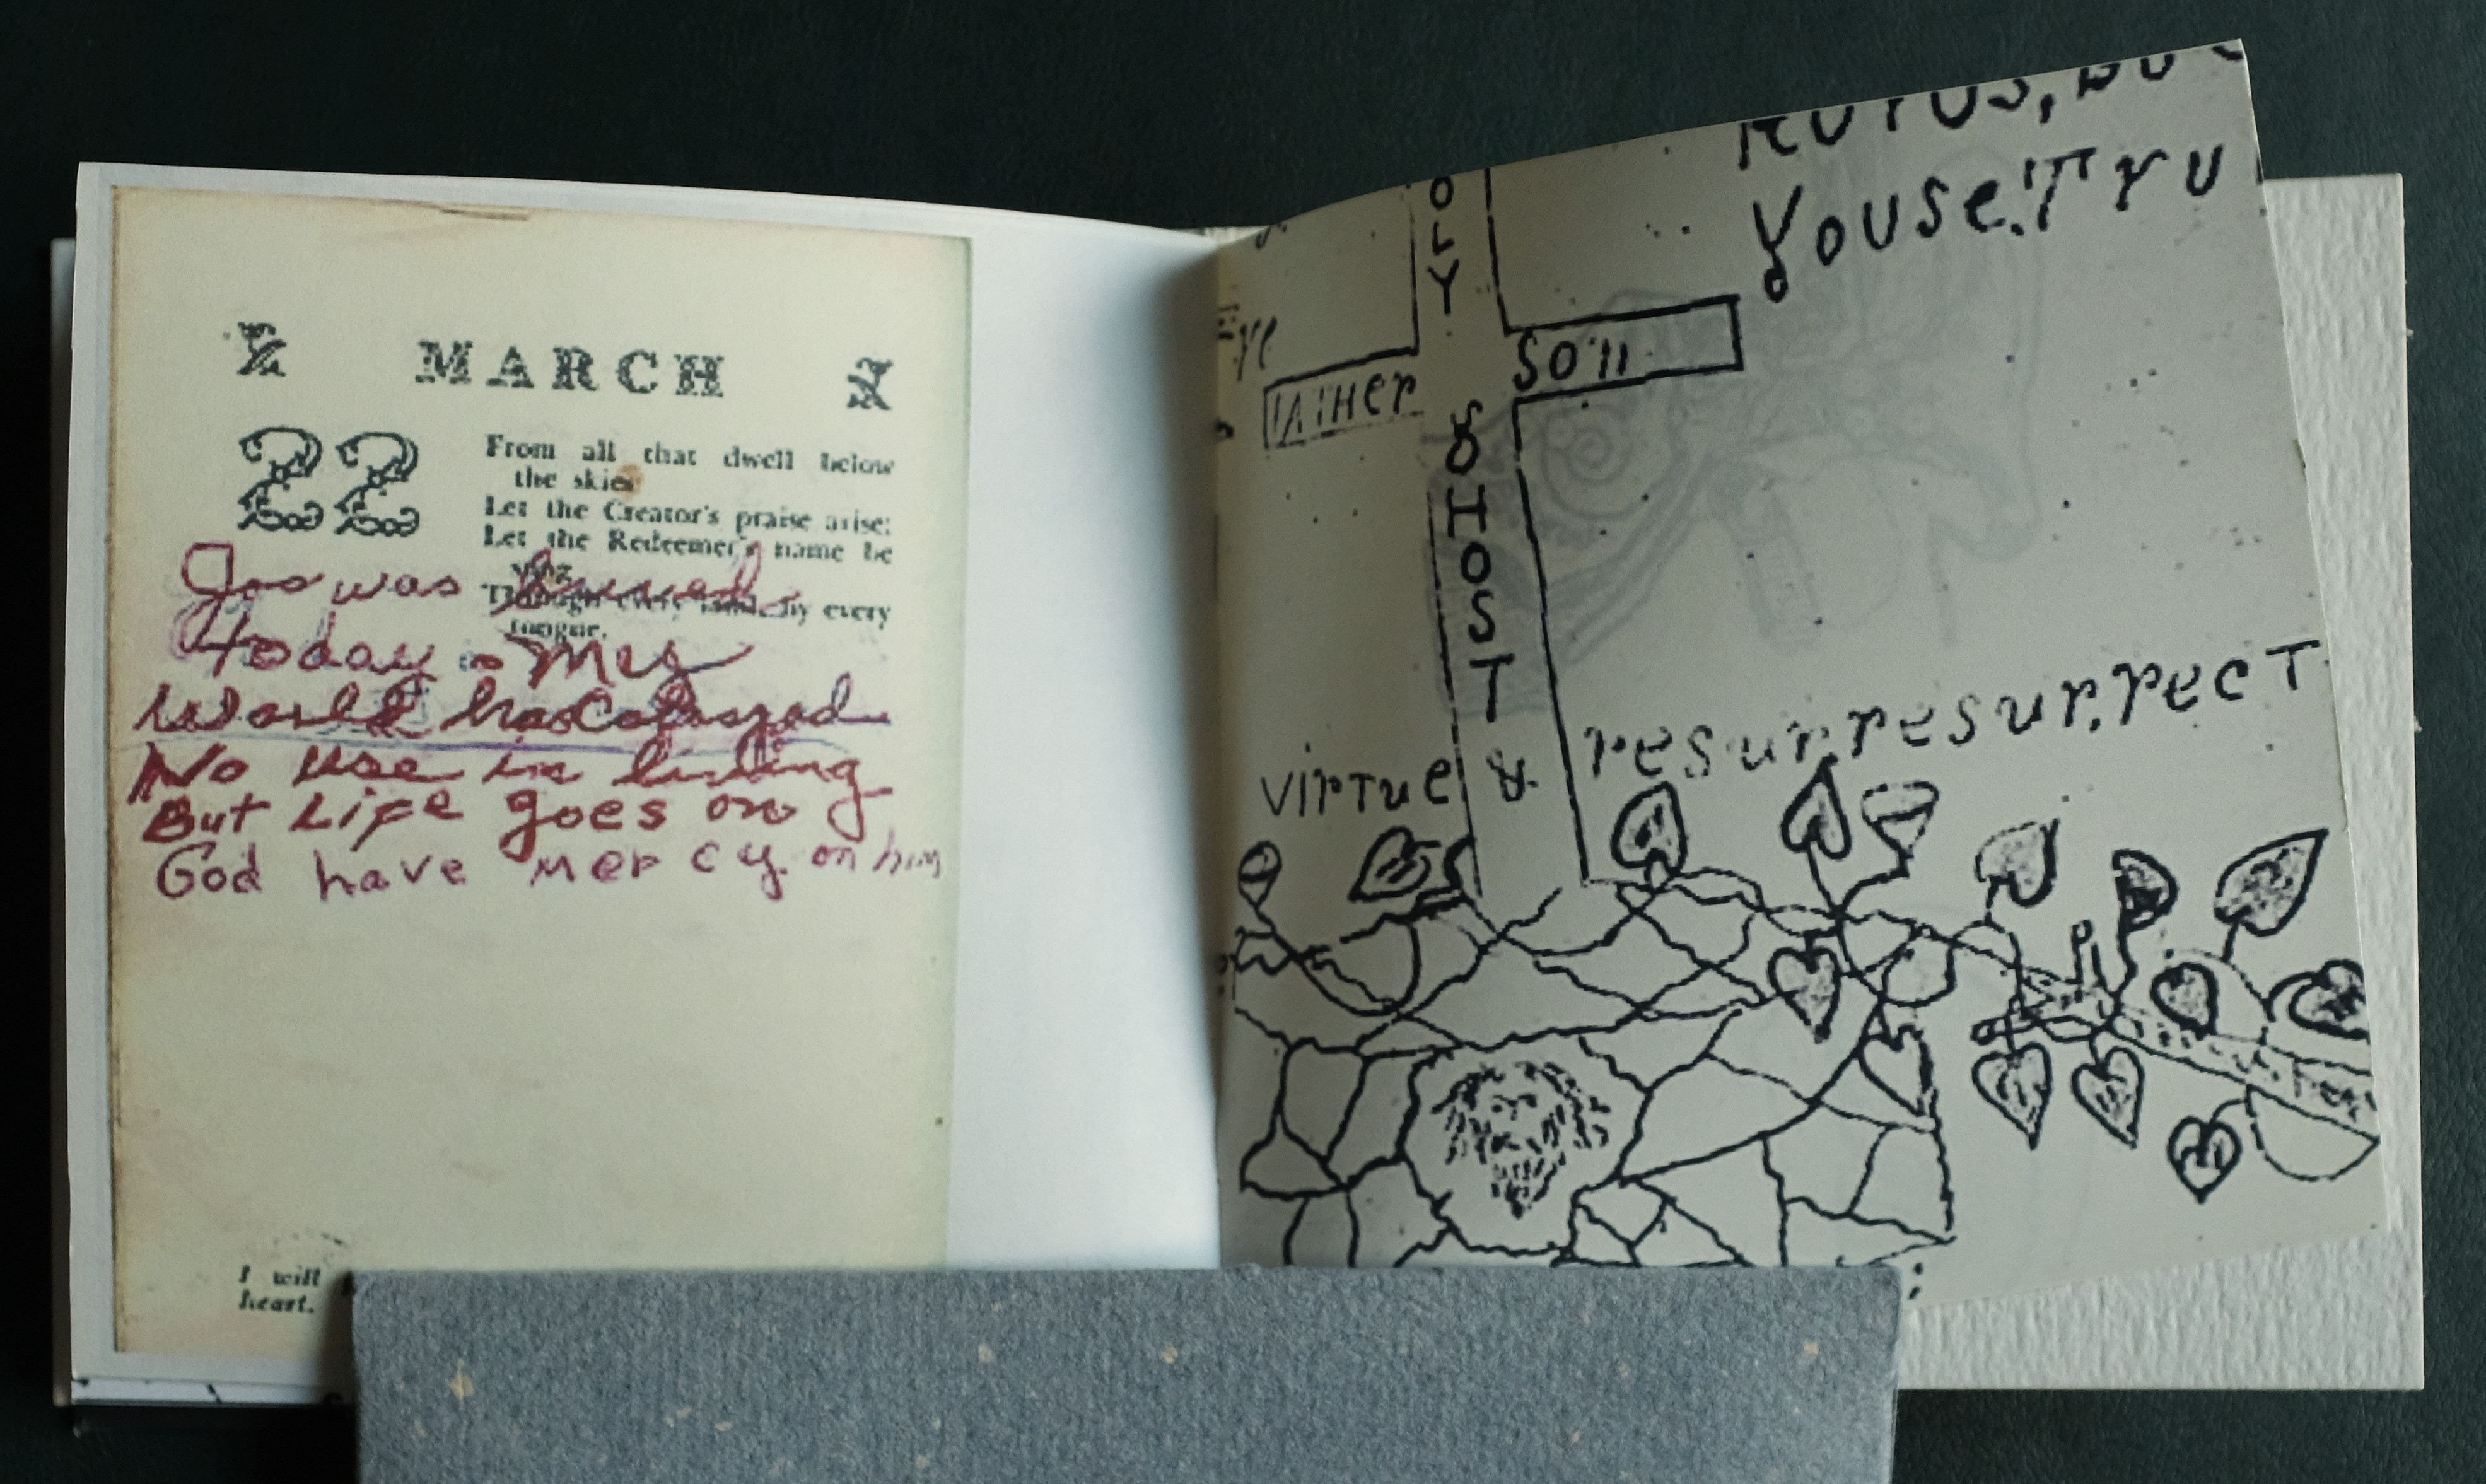 MARCH
22
From all that dwell below
the skies
Let the Creator's praise arise:
Let the Redeemer's name be
Through every land, by every
tongue.
Joe was buried
Today - My
World has Colapsed
No use in living
But Life goes on
God have mercy on him
I will
heart.
youse.Try
OLY
Son
GHOST
virtue &
resur.resur.rect